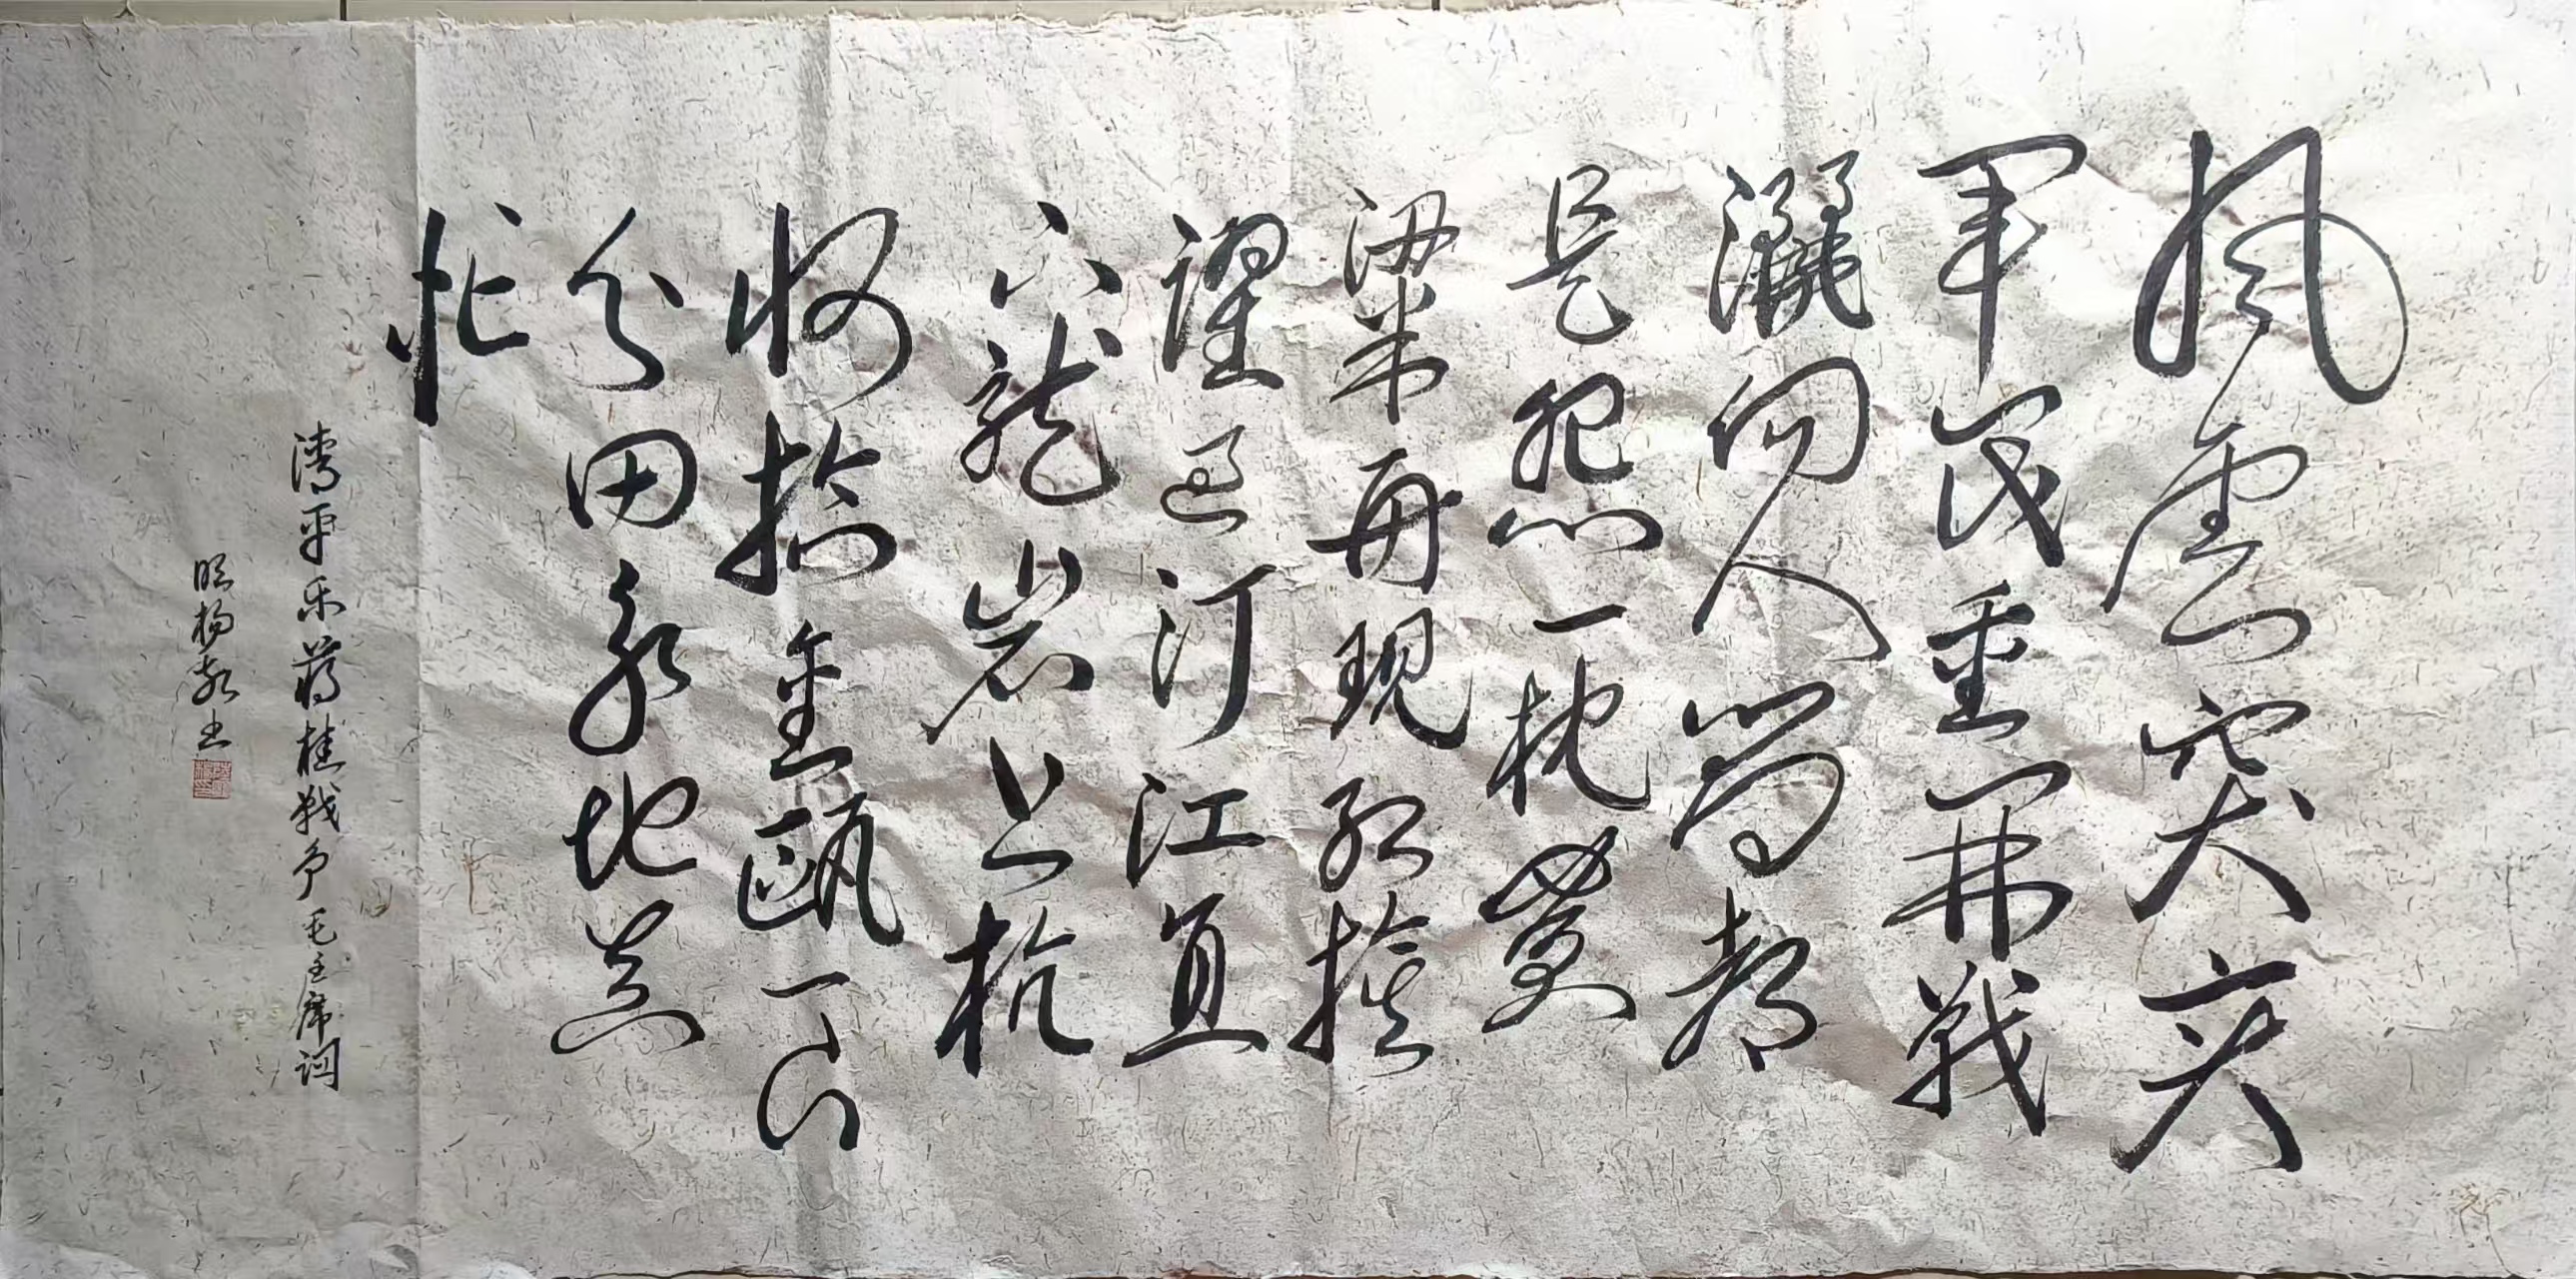 风雲突变
军阀重开战
灑向人间都
是怨一枕黄
粱再现红旗
躍过汀江直
下龙岩上杭
收拾金瓯一片
分田分地真
忙
清平乐蒋桂战争毛主席词
杨敬书